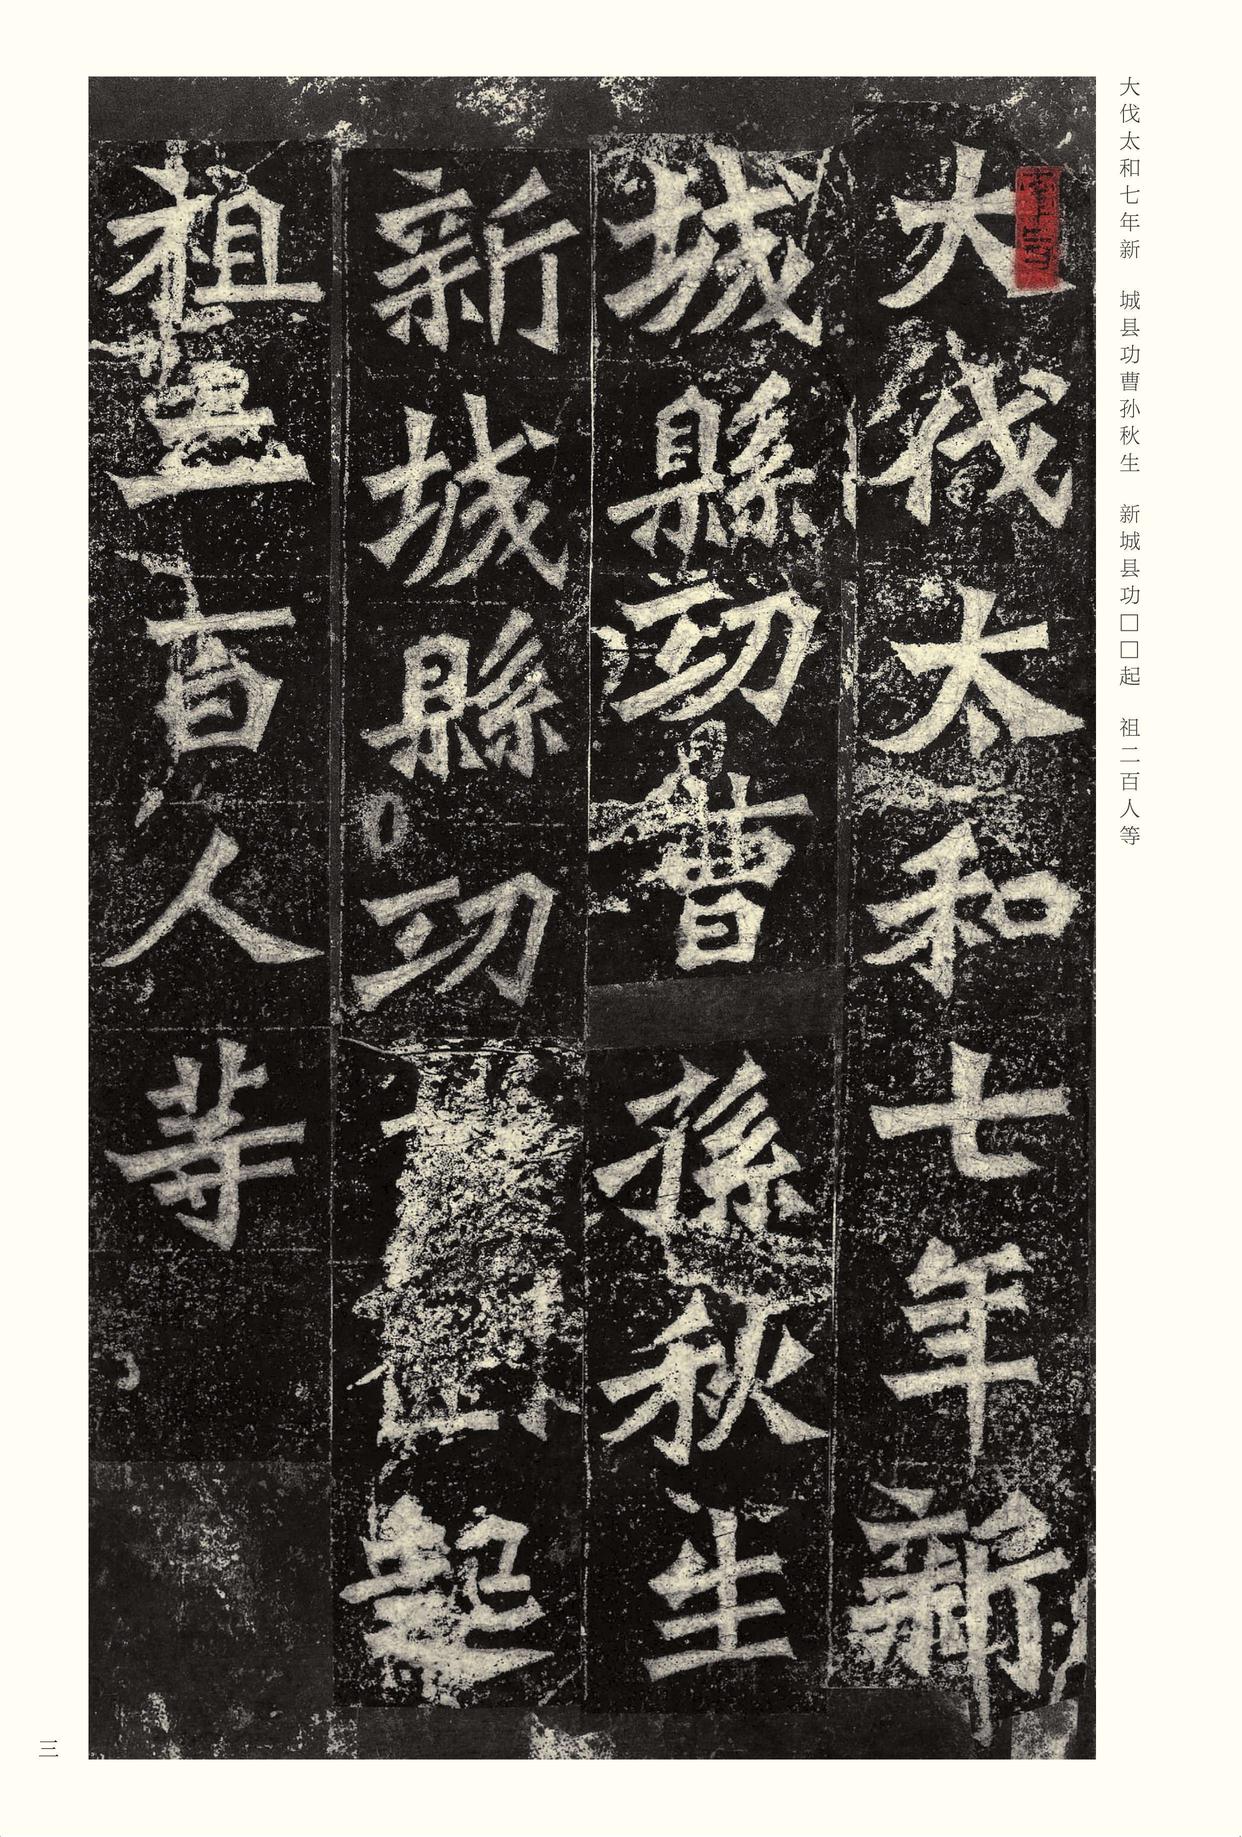 大伐太和七年新　城县功曹孙秋生　新城县功□□起　祖二百人等
大伐太和七年新
城縣功曹孫秋生
新城縣功起
祖二百人等
三